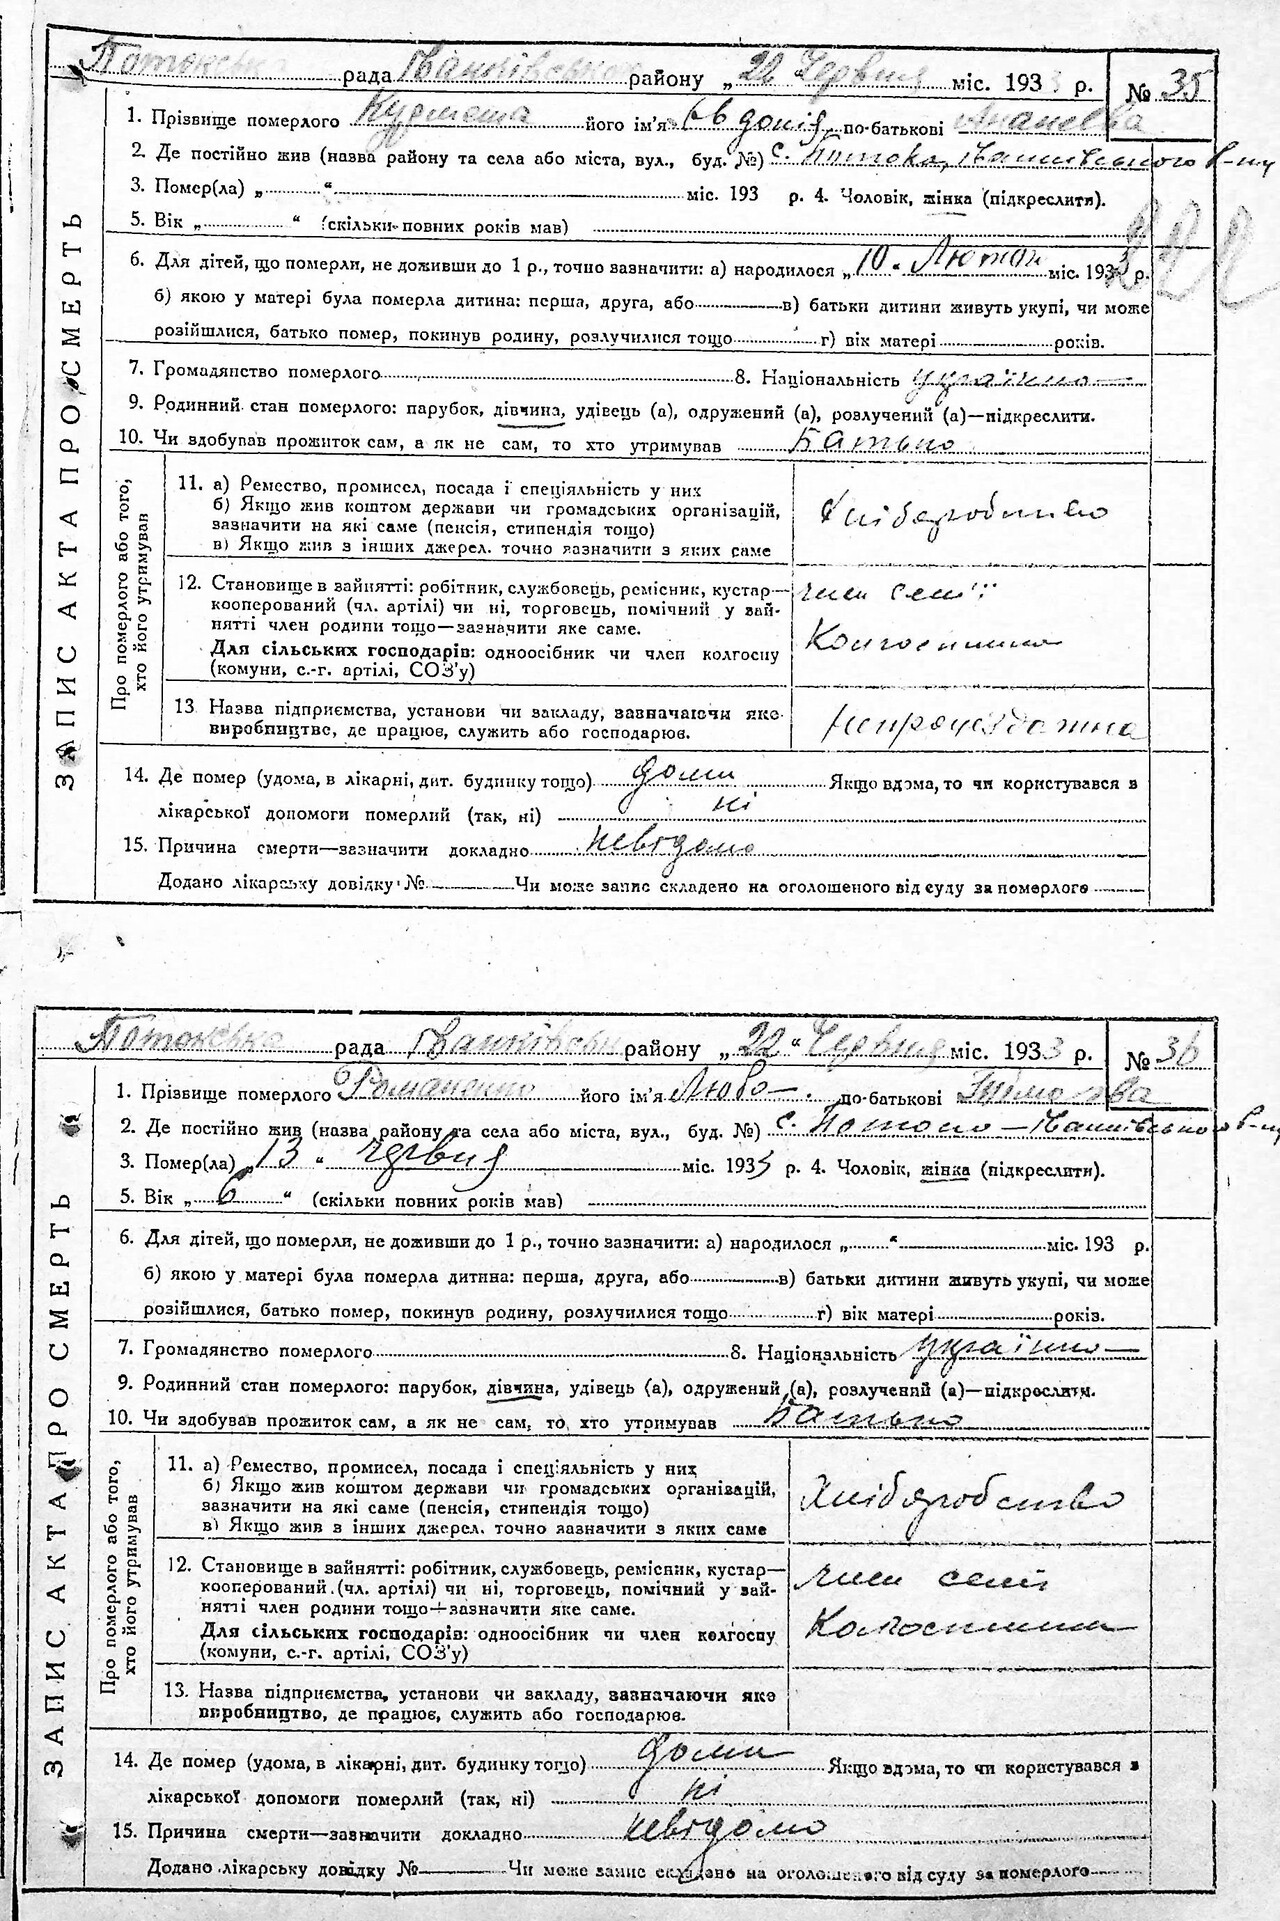 Потокська рада Іванківського району „22 Червня міс. 1933 р. № 35
1. Прізвище померлого його ім'я Євдокія по-батькові
2. Де постійно жив (назва району та села або міста, вул., буд. №) с. Потоки, Іванківського р-ну
3. Помер(ла) „ “ міс. 193 р. 4. Чоловік, жінка (підкреслити).
5. Вік „ “ (скільки повних років мав)
6. Для дітей, що померли, не доживши до 1 р., точно зазначити: а) народилося „10“ Лютого міс. 1933 р.
б) якою у матері була померла дитина: перша, друга, або в) батьки дитини живуть укупі, чи може
розійшлися, батько помер, покинув родину, розлучилися тощо г) вік матері років.
7. Громадянство померлого 8. Національність українка
9. Родинний стан померлого: парубок, дівчина, удівець (а), одружений (а), розлучений (а)—підкреслити.
10. Чи здобував прожиток сам, а як не сам, то хто утримував Батько
ЗАПИС АКТА ПРО СМЕРТЬ
Про померлого або того, хто його утримував
11. а) Ремество, промисел, посада і спеціяльність у них
б) Якщо жив коштом держави чи громадських організацій,
зазначити на які саме (пенсія, стипендія тощо)
в) Якщо жив з інших джерел. точно зазначити з яких саме
Хліборобство
12. Становище в зайнятті: робітник, службовець, ремісник, кустар—
кооперований (чл. артілі) чи ні, торговець, помічний у зай-
нятті член родини тощо—зазначити яке саме.
Для сільських господарів: одноосібник чи член колгоспу
(комуни, с.-г. артілі, СОЗ'у)
член семї
Колгоспника
13 Назва підприємства, установи чи закладу, зазначаючи яке
виробництве, де працює, служить або господарює.
Непрацездатна
14. Де помер (удома, в лікарні, дит. будинку тощо) дома Якщо вдома, то чи користувався з
лікарської допомоги померлий (так, ні) ні
15. Причина смерти—зазначити докладно невідомо
Додано лікарську довідку № Чи може запис складено на оголошеного від суду за померлого
Потокська рада Іванківськ району „22“ Червня міс. 1933 р. № 36
1. Прізвище померлого Романенко його ім'я Люба по-батькові
2. Де постійно жив (назва району та села або міста, вул., буд. №) с. Потоки — Іванківського р-ну
3. Помер(ла) „13“ червня міс. 1933 р. 4. Чоловік, жінка (підкреслити).
5. Вік „6“ (скільки повних років мав)
6. Для дітей, що померли, не доживши до 1 р., точно зазначити: а) народилося „ “ міс. 193 р.
б) якою у матері була померла дитина: перша, друга, або в) батьки дитини живуть укупі, чи може
розійшлися, батько помер, покинув родину, розлучилися тощо г) вік матері років.
7. Громадянство померлого 8. Національність українка
9. Родинний стан померлого: парубок, дівчина, удівець (а), одружений (а), розлучений (а)—підкреслити.
10. Чи здобував прожиток сам, а як не сам, то хто утримував Батько
ЗАПИС АКТА ПРО СМЕРТЬ
Про померлого або того, хто його утримував
11. а) Ремество, промисел, посада і спеціяльність у них
б) Якщо жив коштом держави чи громадських організацій,
зазначити на які саме (пенсія, стипендія тощо)
в) Якщо жив з інших джерел. точно зазначити з яких саме
Хліборобство
12. Становище в зайнятті: робітник, службовець, ремісник, кустар—
кооперований (чл. артілі) чи ні, торговець, помічний у зай-
нятті член родини тощо—зазначити яке саме.
Для сільських господарів: одноосібник чи член колгоспу
(комуни, с.-г. артілі, СОЗ'у)
член семї
Колгоспника
13. Назва підприємства, установи чи закладу, зазначаючи яке
виробництво, де працює, служить або господарює.
14. Де помер (удома, в лікарні, дит. будинку тощо) дома Якщо вдома, то чи користувався з
лікарської допомоги померлий (так, ні) ні
15. Причина смерти—зазначити докладно невідомо
Додано лікарську довідку № Чи може запис складено на оголошеного від суду за померлого